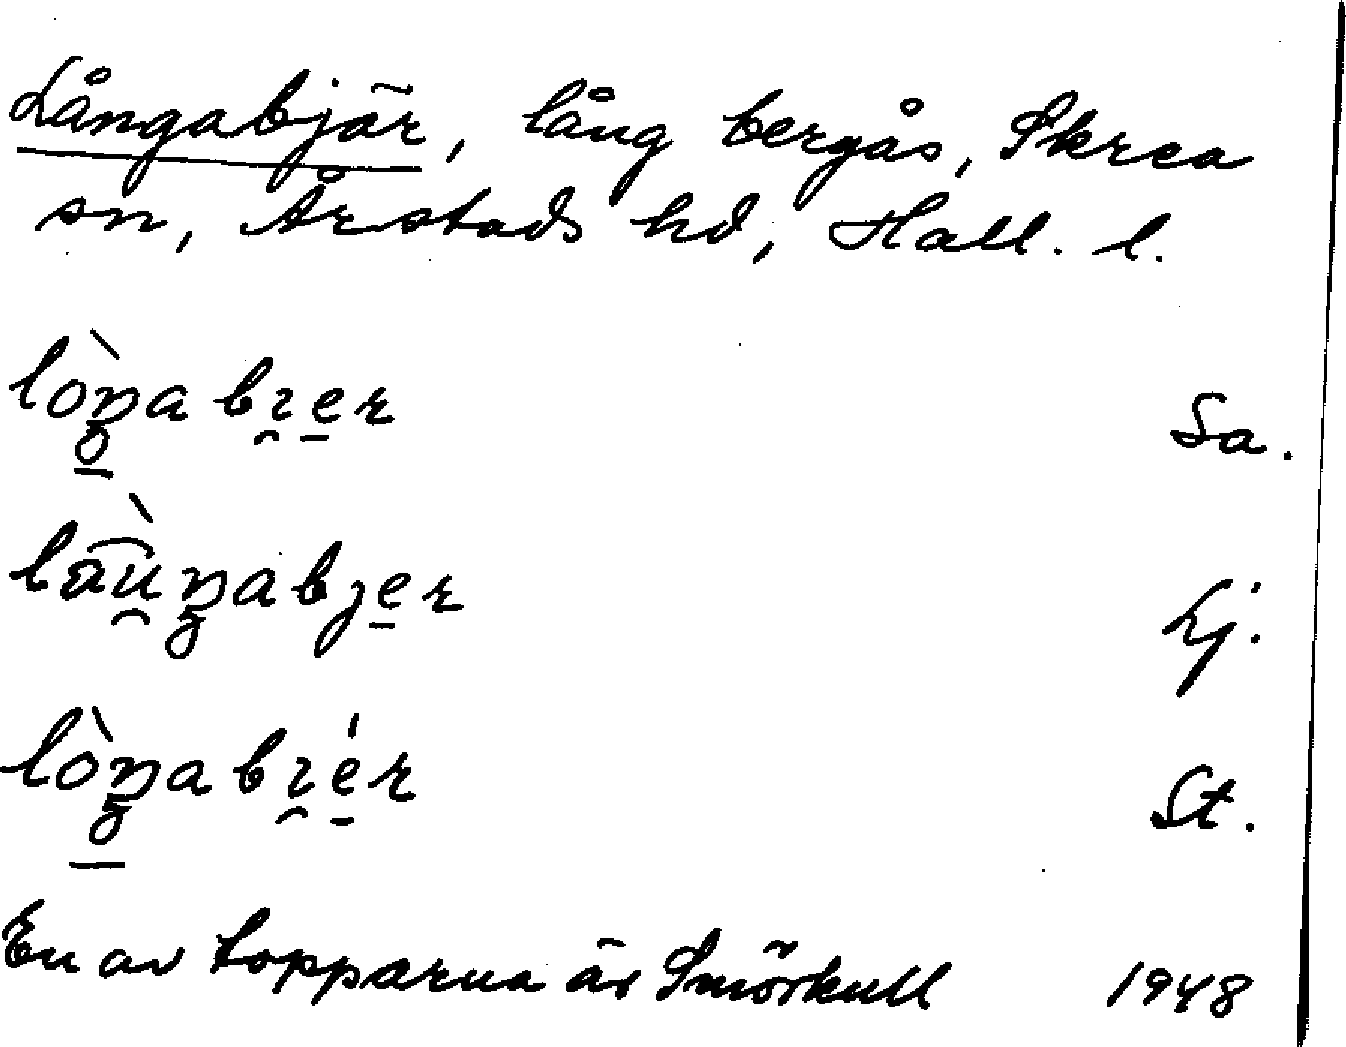 Långabjär, lång bergås, Skrea
sn, Årstads hd, Hall. l.
lòŋabɪ̯e̠r Sa.
laùŋabȷe̠r Lj.
lòŋabɪ̯é̠r St.
En av topparna är Smörkull 1948